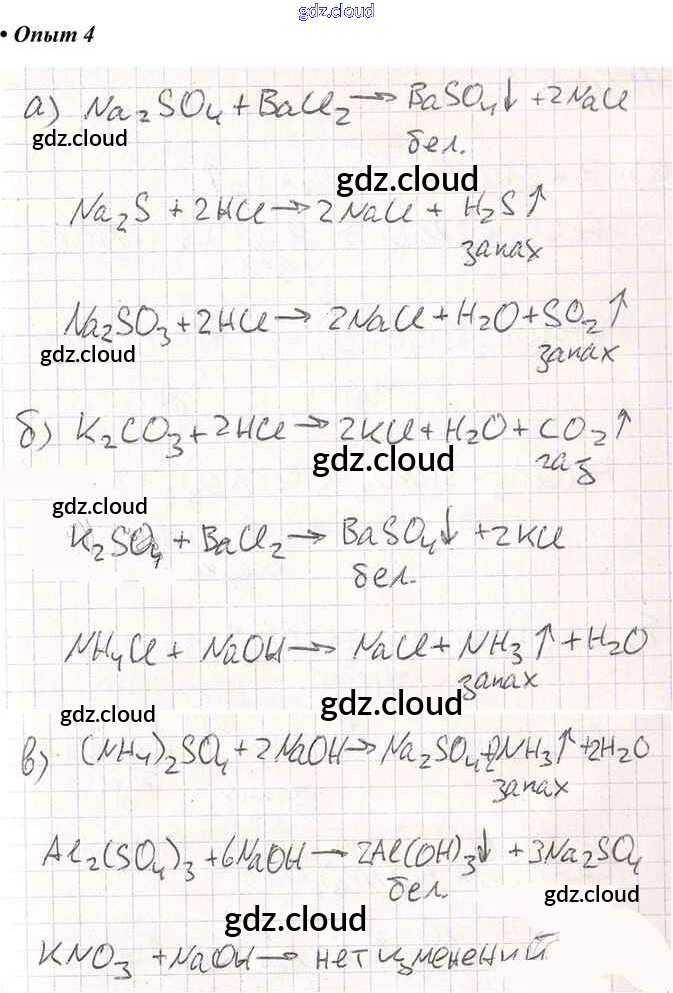 gdz.cloud
• Опыт 4
а) Na₂SO₄ + BaCl₂ → BaSO₄↓ + 2NaCl
gdz.cloud
бел.
gdz.cloud
Na₂S + 2HCl → 2NaCl + H₂S↑
запах
Na₂SO₃ + 2HCl → 2NaCl + H₂O + SO₂↑
gdz.cloud
запах
б) K₂CO₃ + 2HCl → 2KCl + H₂O + CO₂↑
gdz.cloud
газ
gdz.cloud
K₂SO₄ + BaCl₂ → BaSO₄↓ + 2KCl
бел.
NH₄Cl + NaOH → NaCl + NH₃↑ + H₂O
запах
gdz.cloud
gdz.cloud
в) (NH₄)₂SO₄ + 2NaOH → Na₂SO₄ + 2NH₃↑ + 2H₂O
запах
Al₂(SO₄)₃ + 6NaOH → 2Al(OH)₃↓ + 3Na₂SO₄
бел.
gdz.cloud
gdz.cloud
KNO₃ + NaOH → нет изменений